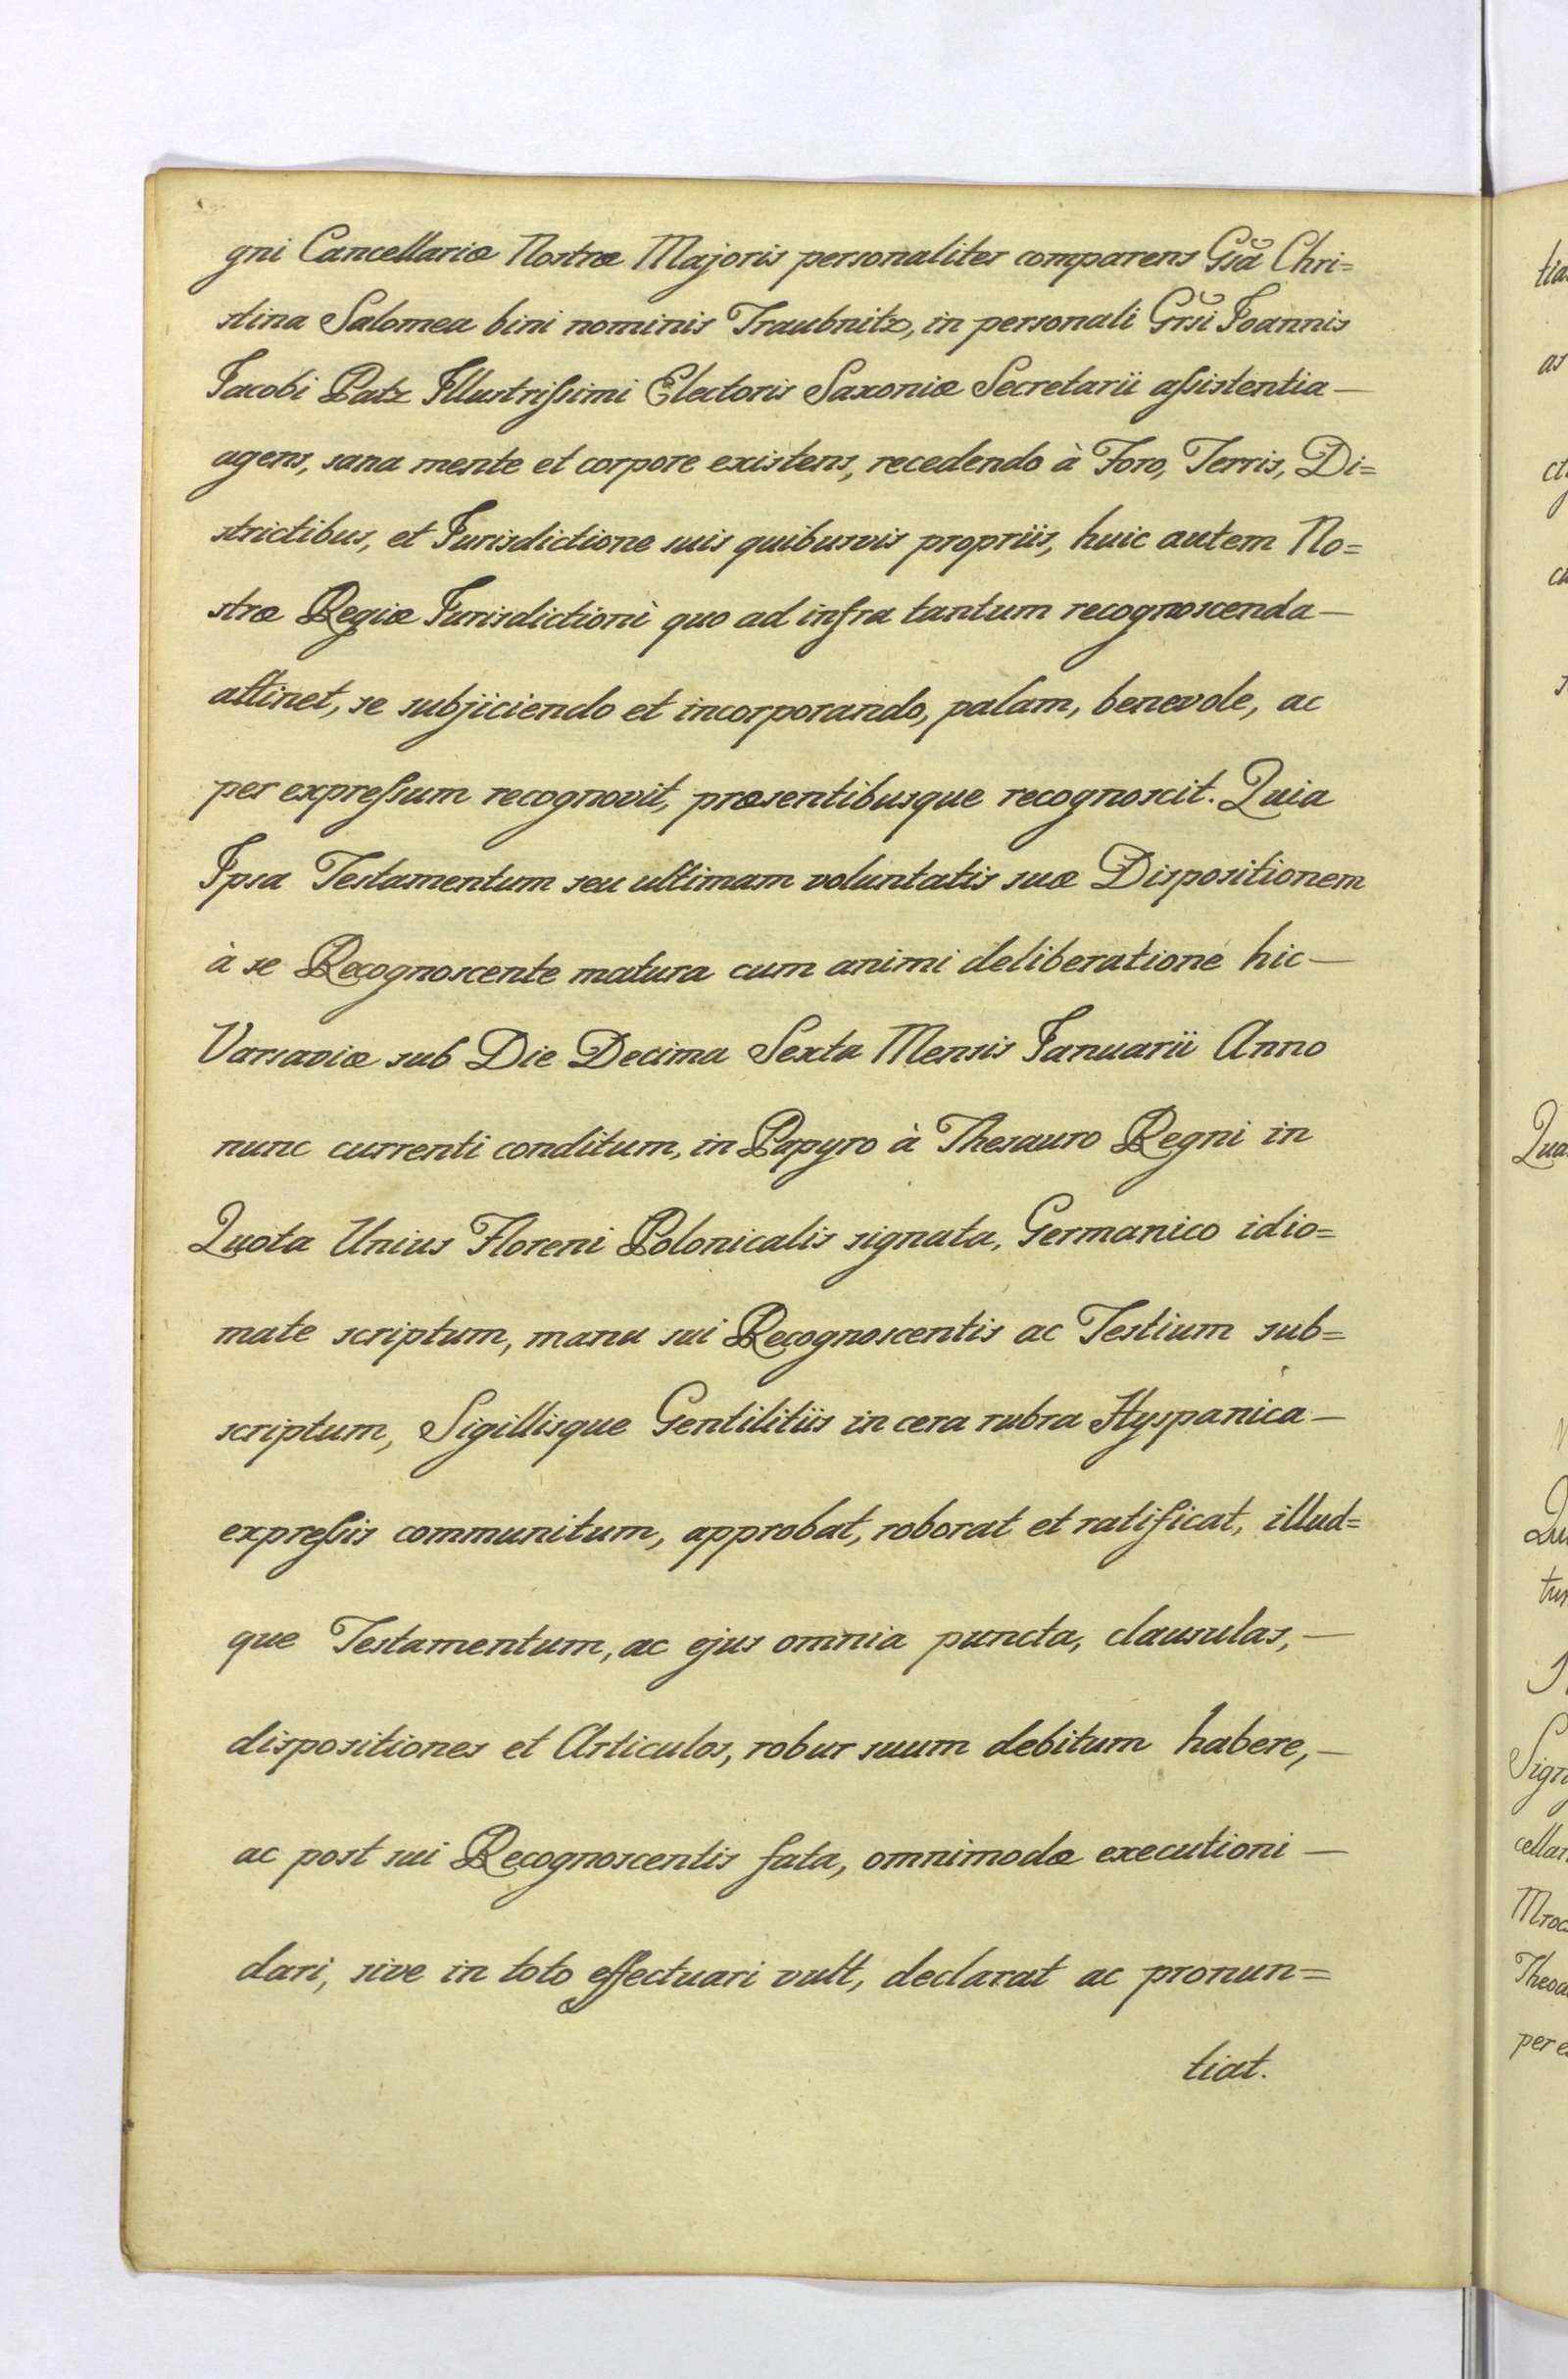 gni Cancellariæ Nostræ Majoris personaliter comparens Gsã Chri=
stina Salomea bini nominis Traubnitz, in personali Grsi Joannis
Jacobi Patz Illustrißimi Electoris Saxoniæ Secretarii aßistentia —
agens, sana mente et corpore existens, recedendo à Foro, Terris, Di=
strictibus, et Jurisdictione suis quibusvis propriis, huic autem No=
stræ Regiæ Jurisdictioni quo ad infra tantum recognoscenda —
attinet, se subjiciendo et incorporando, palam, benevole, ac
per expreßum recognovit, præsentibusque recognoscit. Quia
Ipsa Testamentum seu ultimam voluntatis suæ Dispositionem
à se Recognoscente matura cum animi deliberatione hic —
Varsaviæ sub Die Decima Sexta Mensis Januarii Anno
nunc currenti conditum, in Papyro à Thesauro Regni in
Quota Unius Floreni Polonicalis signata, Germanico idio=
mate scriptum, manu sui Recognoscentis ac Testium sub=
scriptum, Sigillisque Gentilitiis in cera rubra Hyspanica —
expreßis communitum, approbat, roborat et ratificat, illud=
que Testamentum, ac ejus omnia puncta, clausulas, —
dispositiones et Articulos, robur suum debitum habere, —
ac post sui Recognoscentis fata, omnimodæ executioni —
dari, sive in toto effectuari vult, declarat ac pronun=
tiat.